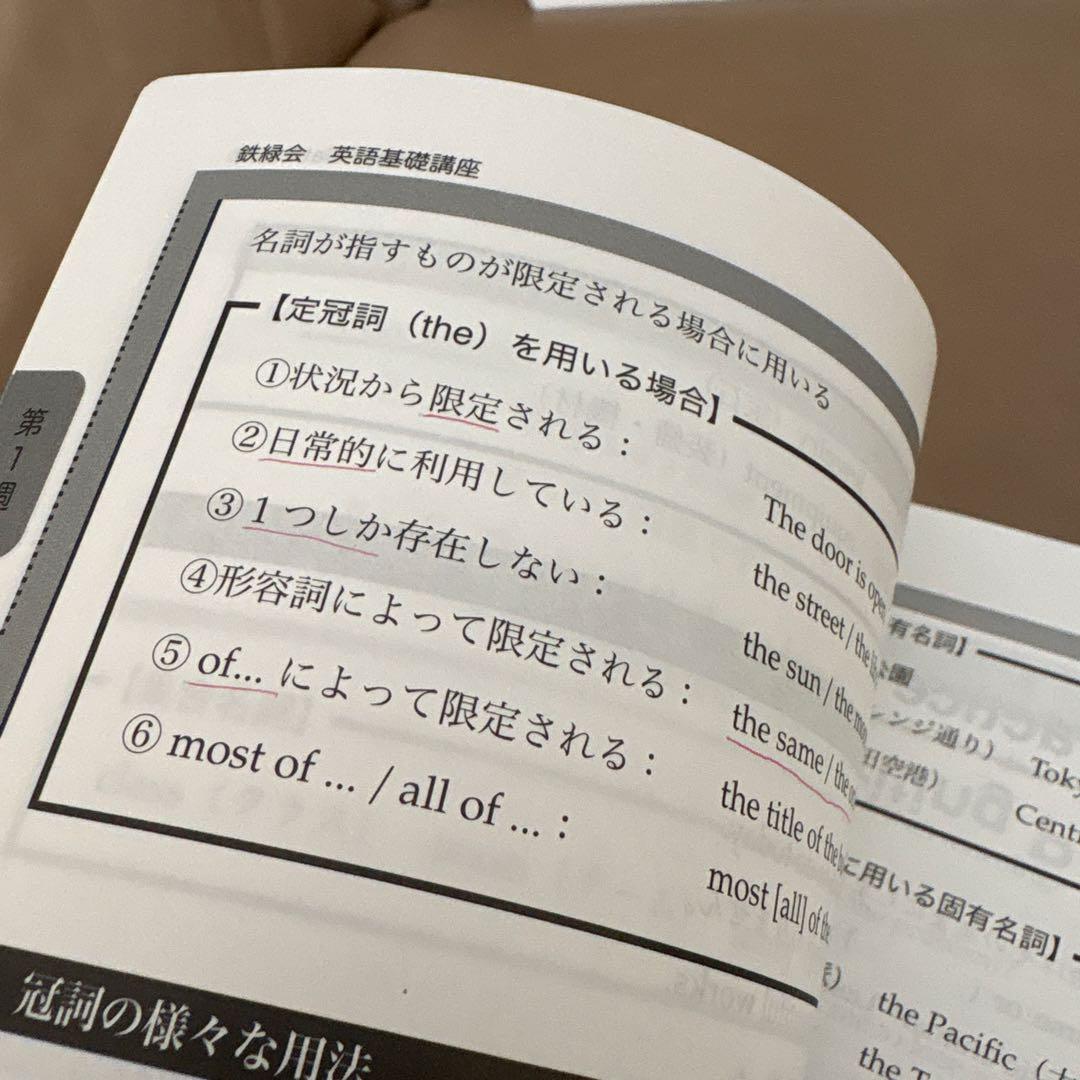 鉄緑会 英語基礎講座
名詞が指すものが限定される場合に用いる
【定冠詞（the）を用いる場合】
①状況から限定される： The door is open
②日常的に利用している： the street / the
③１つしか存在しない： the sun / the
④形容詞によって限定される： the same / the
⑤ of... によって限定される： the title of the
⑥ most of ... / all of ...： most [all] of the
冠詞の様々な用法
第1週
有名詞】
園
ンジ通り） Toky
空港） Cent
に用いる固有名詞】
the Pacific（
the T